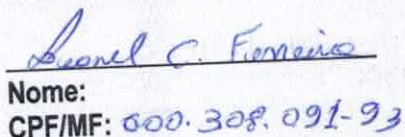 Leonel C. Ferreira
Nome:
CPF/MF: 600.308.091-93